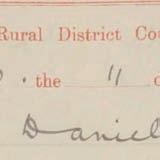 Rural District Cou
. the 11 o
Daniel